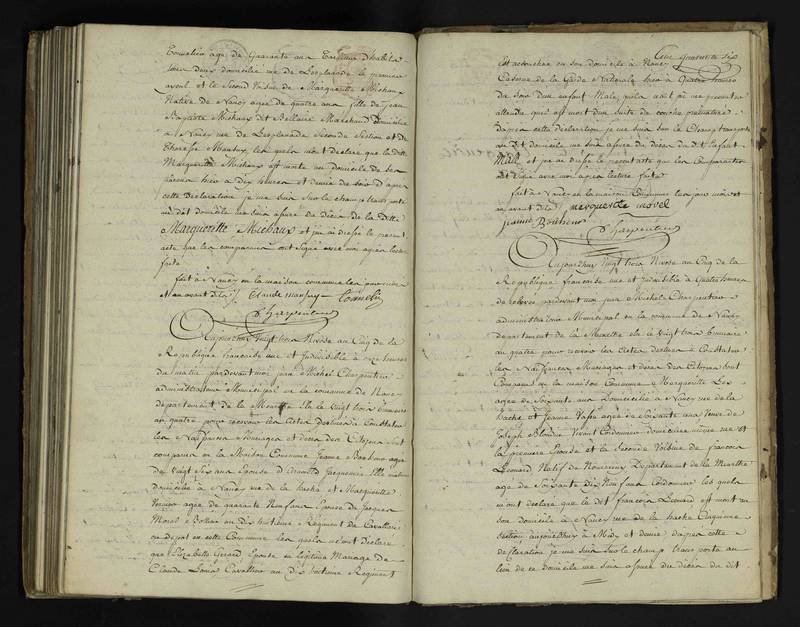 Tonnelier agé de Quarante ans
Tous deux domicilié rue de L'esplanade le premier
ayeul et le Second Voisin de Marguerite Michaux
Native de Nancy agée de quatre ans fille de Jean
Baptiste Michaux dit Bellair Marchand Domicilié
à Nancy rue de L'esplanade Seconde Section et de
Therese Mansuy les quels m'ont declaré que la ditte
Marguerite Michaux est morte au domicile de Ses
hier à Dix heures et demie du Soir D'apres
cette Declaration je me Suis Sur le champ transporté
au dit domicile me Suis assuré du Décès de la ditte
Marguerite Michaux et j'ai dressé le present
acte que les comparans ont Signé avec moi apres lecture
faite
fait à Nancy en la maison commune les jour mois
et an avant dits Claude Mansuy
Charpentier
Aujourdhuy Vingt trois Nivose an Cinq de la
Republique francaise une et Indivisible à onze heures
du matin pardevant moi Jean Michel Charpentier
administrateur Municipal de la commune de Nancy
departement de la Meurthe élu le Vingt trois brumaire
an quatre pour recevoir les Actes destinés à Constater
les Naissances Mariages et deces des Citoyens sont
comparus en la Maison Commune Jeanne agée
de Vingt Six ans Epouse d'Arnould Jacquemin
domicilié à Nancy rue de la hache et Marguerite
agée de quarante Neuf ans Epouse de Jacques
Morel au Dix huitieme Régiment de Cavallerie
au depot en cette Commune les quels m'ont déclaré
que Elizabette Gerard Epouse en légitime Mariage de
Claude Louis Cavallier au Dix huitieme Régiment
Cent quarante Six
est accouchée en son domicile à Nancy
Caserne de la Garde Nationale hier à Quatre heures
du Soir D'un enfant Male qu'elles n'ont pu me presenter
attendu qu'il est mort D'une Suite de couche prématurée
D'apres cette déclaration je me Suis Sur le Champ transporté
au Dit domicile me Suis assuré du deces du dit Enfant
Male et j'ai dressé le present acte que les Comparantes
ont Signé avec moi apres lecture faite
fait à Nancy en la maison Commune les jour mois et
an avant dits marguerite morel
jeanne
Charpentier
Aujourdhuy Vingt trois Nivose an Cinq de la
Republique francaise une et indivisible à Quatre heures
de relevée pardevant moi Jean Michel Charpentier
administrateur Municipal de la commune de Nancy
departement de la Meurthe élu le Vingt trois brumaire
an quatre pour recevoir les Actes destinés à Constater
les Naissances Mariages et deces des Citoyens sont
Comparus en la maison Commune Marguerite
agée de Soixante ans Domiciliée à Nancy rue de la
hache et Jeanne agée de Soixante ans Veuve de
Joseph Blondin Vivant Cordonnier domiciliée même rue et
la premiere Epouse et la Seconde Voisine de francois
Leonard Natif de Departement de la Meurthe
agé de Soixante Dix Neuf ans Cordonnier les quels
m'ont declaré que le dit francois Leonard est mort en
son domicile à Nancy rue de la hache Cinquieme
Section aujourdhuy à Midy et demie d'apres cette
declaration je me Suis Sur le champ transporté au
lieu de ce Domicile me Suis assuré du deces du dit